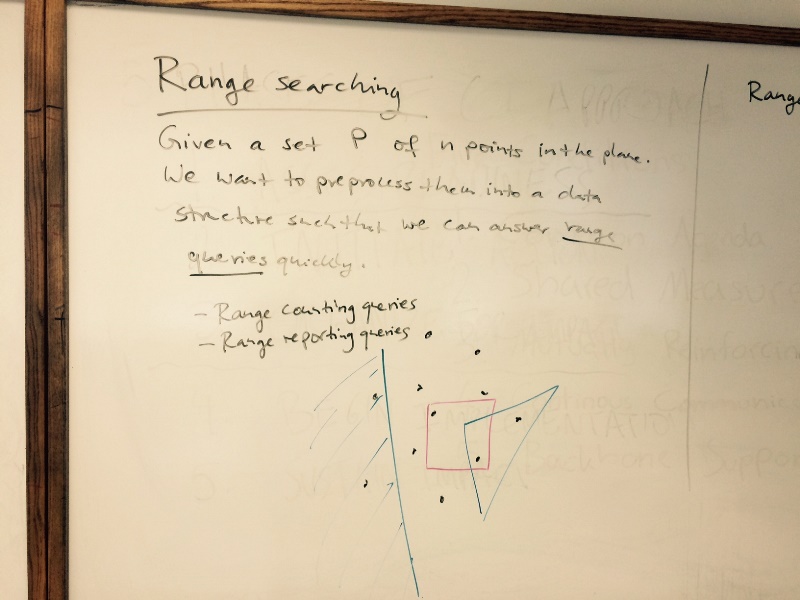 Range searching
Given a set P of n points in the plane.
We want to preprocess them into a data
structure such that we can answer range
queries quickly.
- Range counting queries
- Range reporting queries
Range
Shared Measure
Backbone Suppor